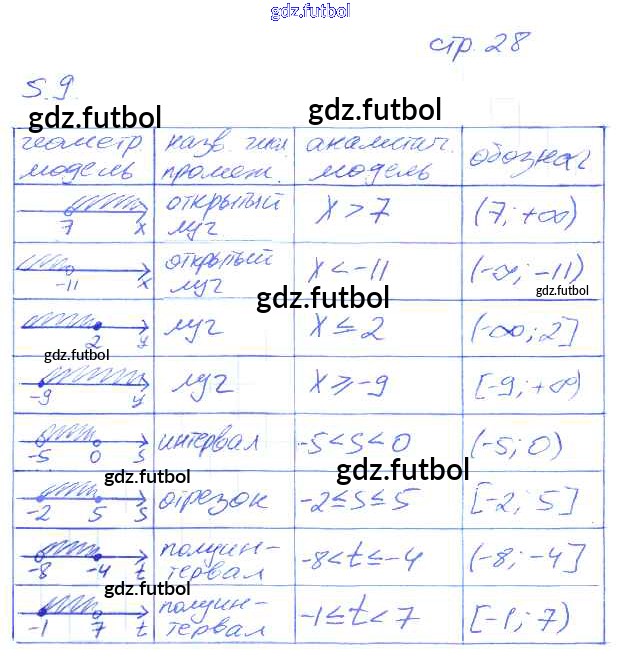 gdz.futbol
стр. 28
5.9.
gdz.futbol gdz.futbol
геометр. модель | назв. числ. промеж. | аналитич. модель | обознач
7 x | открытый луч | x > 7 | (7; +∞)
-11 x | открытый луч | x < -11 | (-∞; -11)
gdz.futbol gdz.futbol
2 y | луч | x ≤ 2 | (-∞; 2]
gdz.futbol
-9 y | луч | x ≥ -9 | [-9; +∞)
-5 0 s | интервал | -5 < s < 0 | (-5; 0)
gdz.futbol gdz.futbol
-2 5 s | отрезок | -2 ≤ s ≤ 5 | [-2; 5]
-8 -4 t | полуин- тервал | -8 < t ≤ -4 | (-8; -4]
gdz.futbol
-1 7 t | полуин- тервал | -1 ≤ t < 7 | [-1; 7)